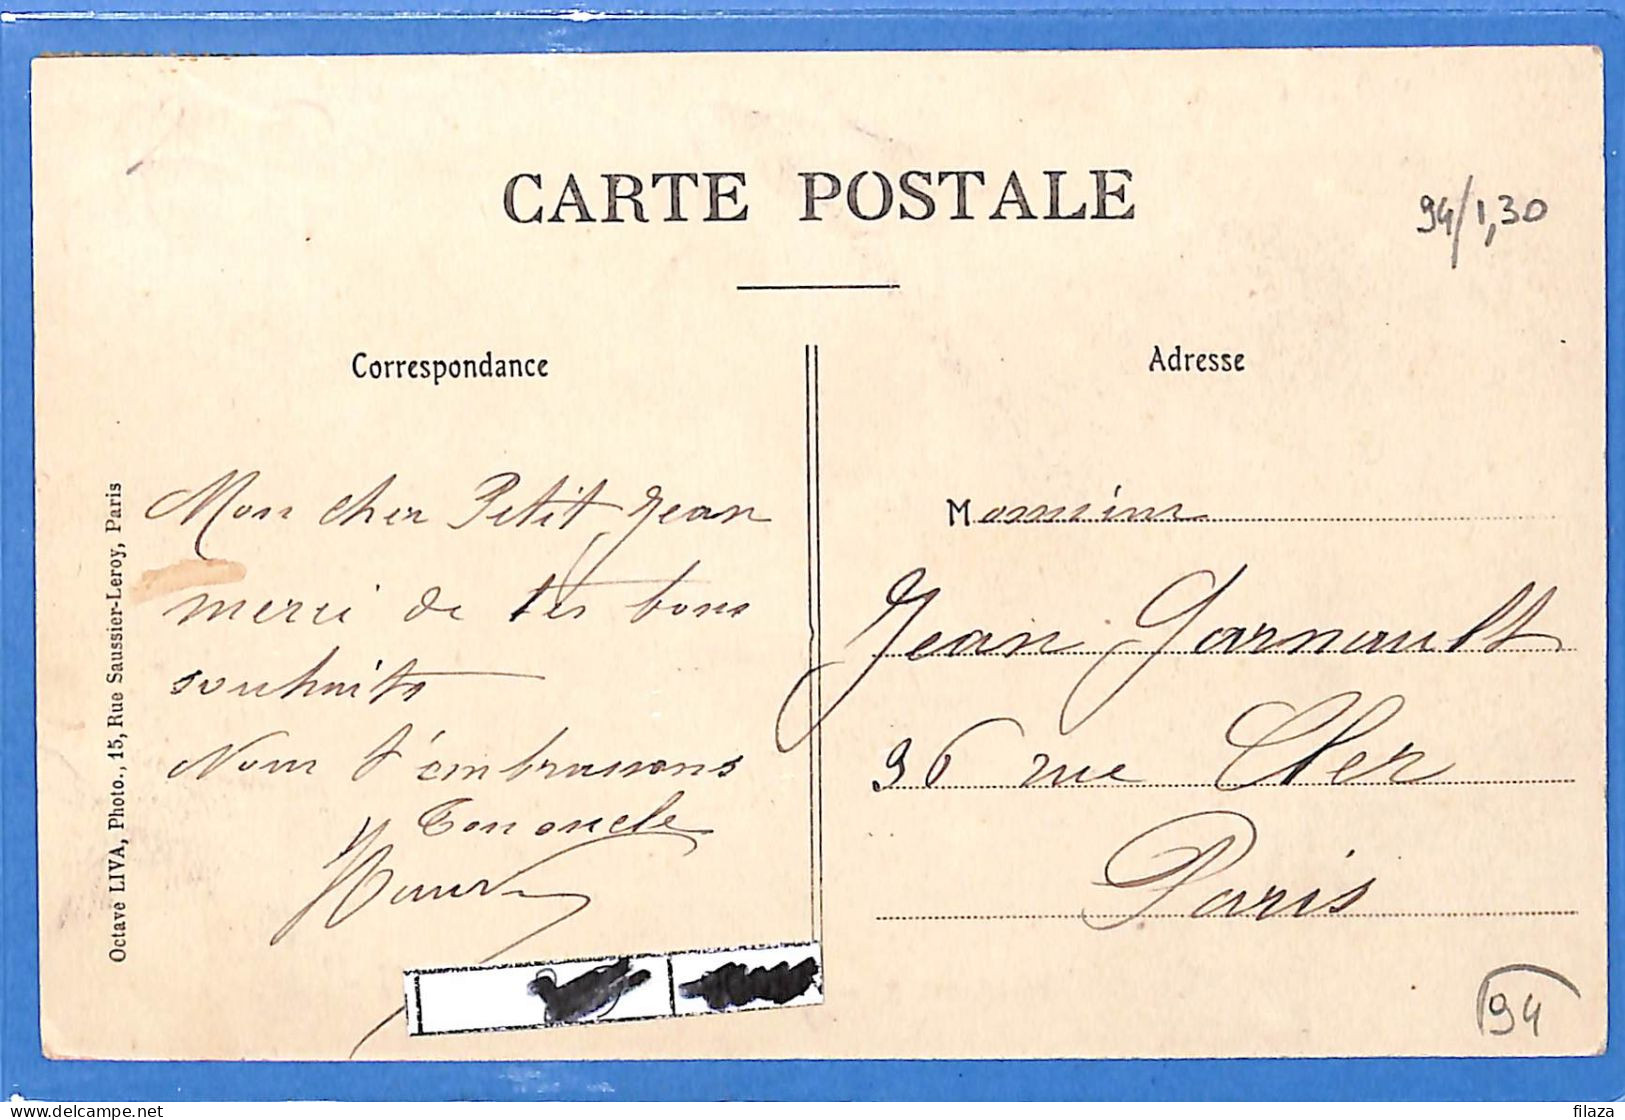 CARTE POSTALE
94/1,30
Correspondance
Adresse
Octave LIVA, Photo., 15, Rue Saussier-Leroy, Paris
Mon cher Petit Jean
merci de tes bons
souhaits
Nous t'embrassons
Ton oncle
Monsieur
Jean Garnault
36 rue Cler
Paris
94
www.delcampe.net
filaza